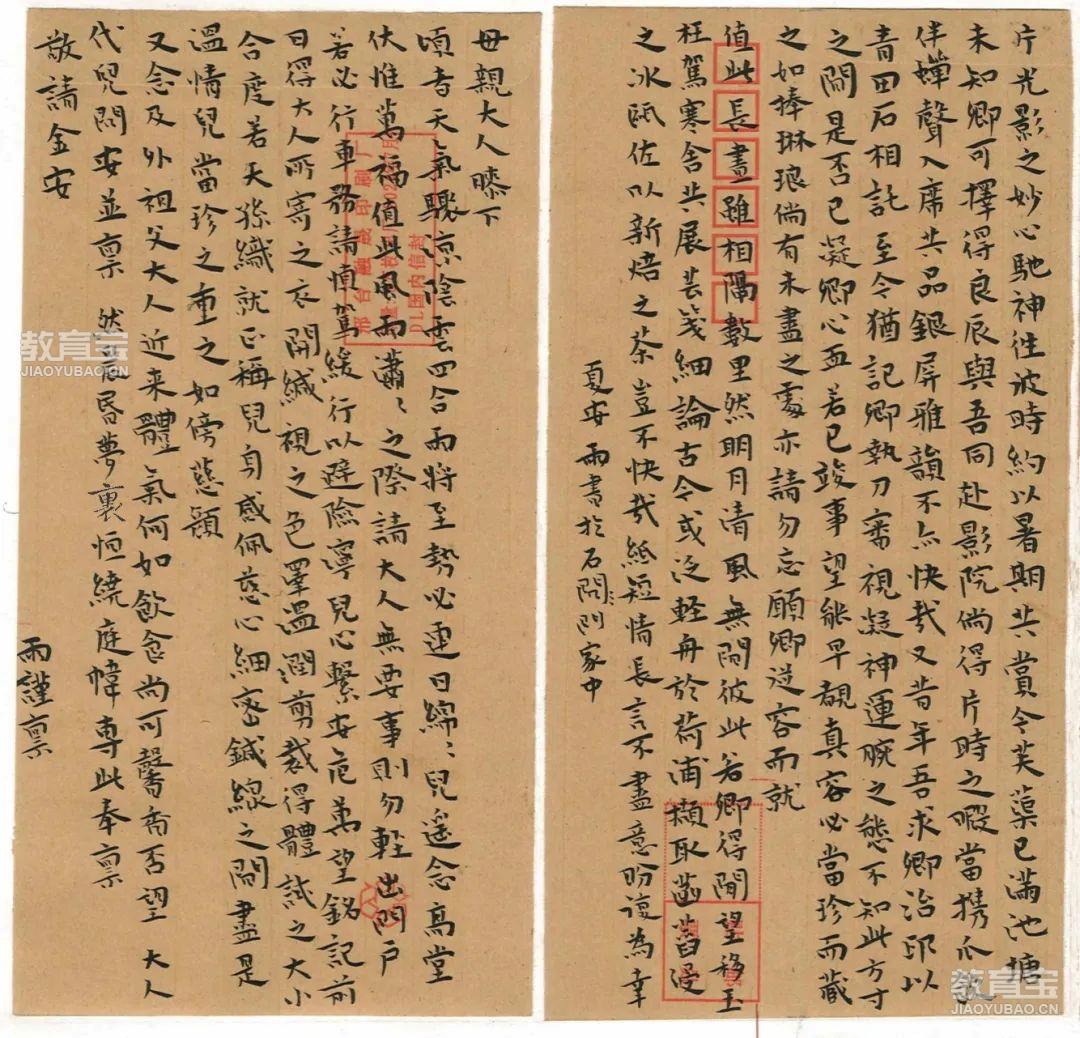 片光影之妙心馳神往彼時約以暑期共賞今芙蕖已滿池塘
未知卿可擇得良辰與吾同赴影院倘得片時之暇當携瓜
伴蟬聲入席共品銀屏雅韻不亦快哉又昔年吾求卿治印以
青田石相託至今猶記卿執刀審視凝神運腕之態不知此方寸
之間是否已凝卿心血若已竣事望能早覩真容必當珍而藏
之如捧琳琅倘有未盡之處亦請勿忘願卿從容而就
值此長晝雖相隔數里然明月清風無間彼此若卿得閒望移玉
枉駕寒舍共展芸箋細論古今或泛輕舟於荷浦擷取菡萏浸
之冰甌佐以新焙之茶豈不快哉紙短情長言不盡意盼復為幸
夏安 雨書於石門家中
母親大人膝下
頃者天氣驟涼陰雲四合雨將至勢必連日綿〻兒遥念高堂
伏惟萬福值此風雨瀟〻之際請大人無要事則勿輕出門户
若必行車務請慎駕緩行以避險寧兒心繫安危萬望銘記前
日得大人所寄之衣開緘視之色罩溫潤剪裁得體試之大小
合度若天孫織就正稱兒身感佩慈心細密鍼線之間盡是
溫情兒當珍之重之如傍慈顏
又念及外祖父大人近来體氣何如飲食尚可馨香否望 大人
代兒問安並禀 然晨昏夢裏恒繞庭幃專此奉禀
敬請金安
雨謹禀
邢台融晟印刷厂
DL国内信封
教育宝
JIAOYUBAO.CN
教育宝
JIAOYUBAO.CN